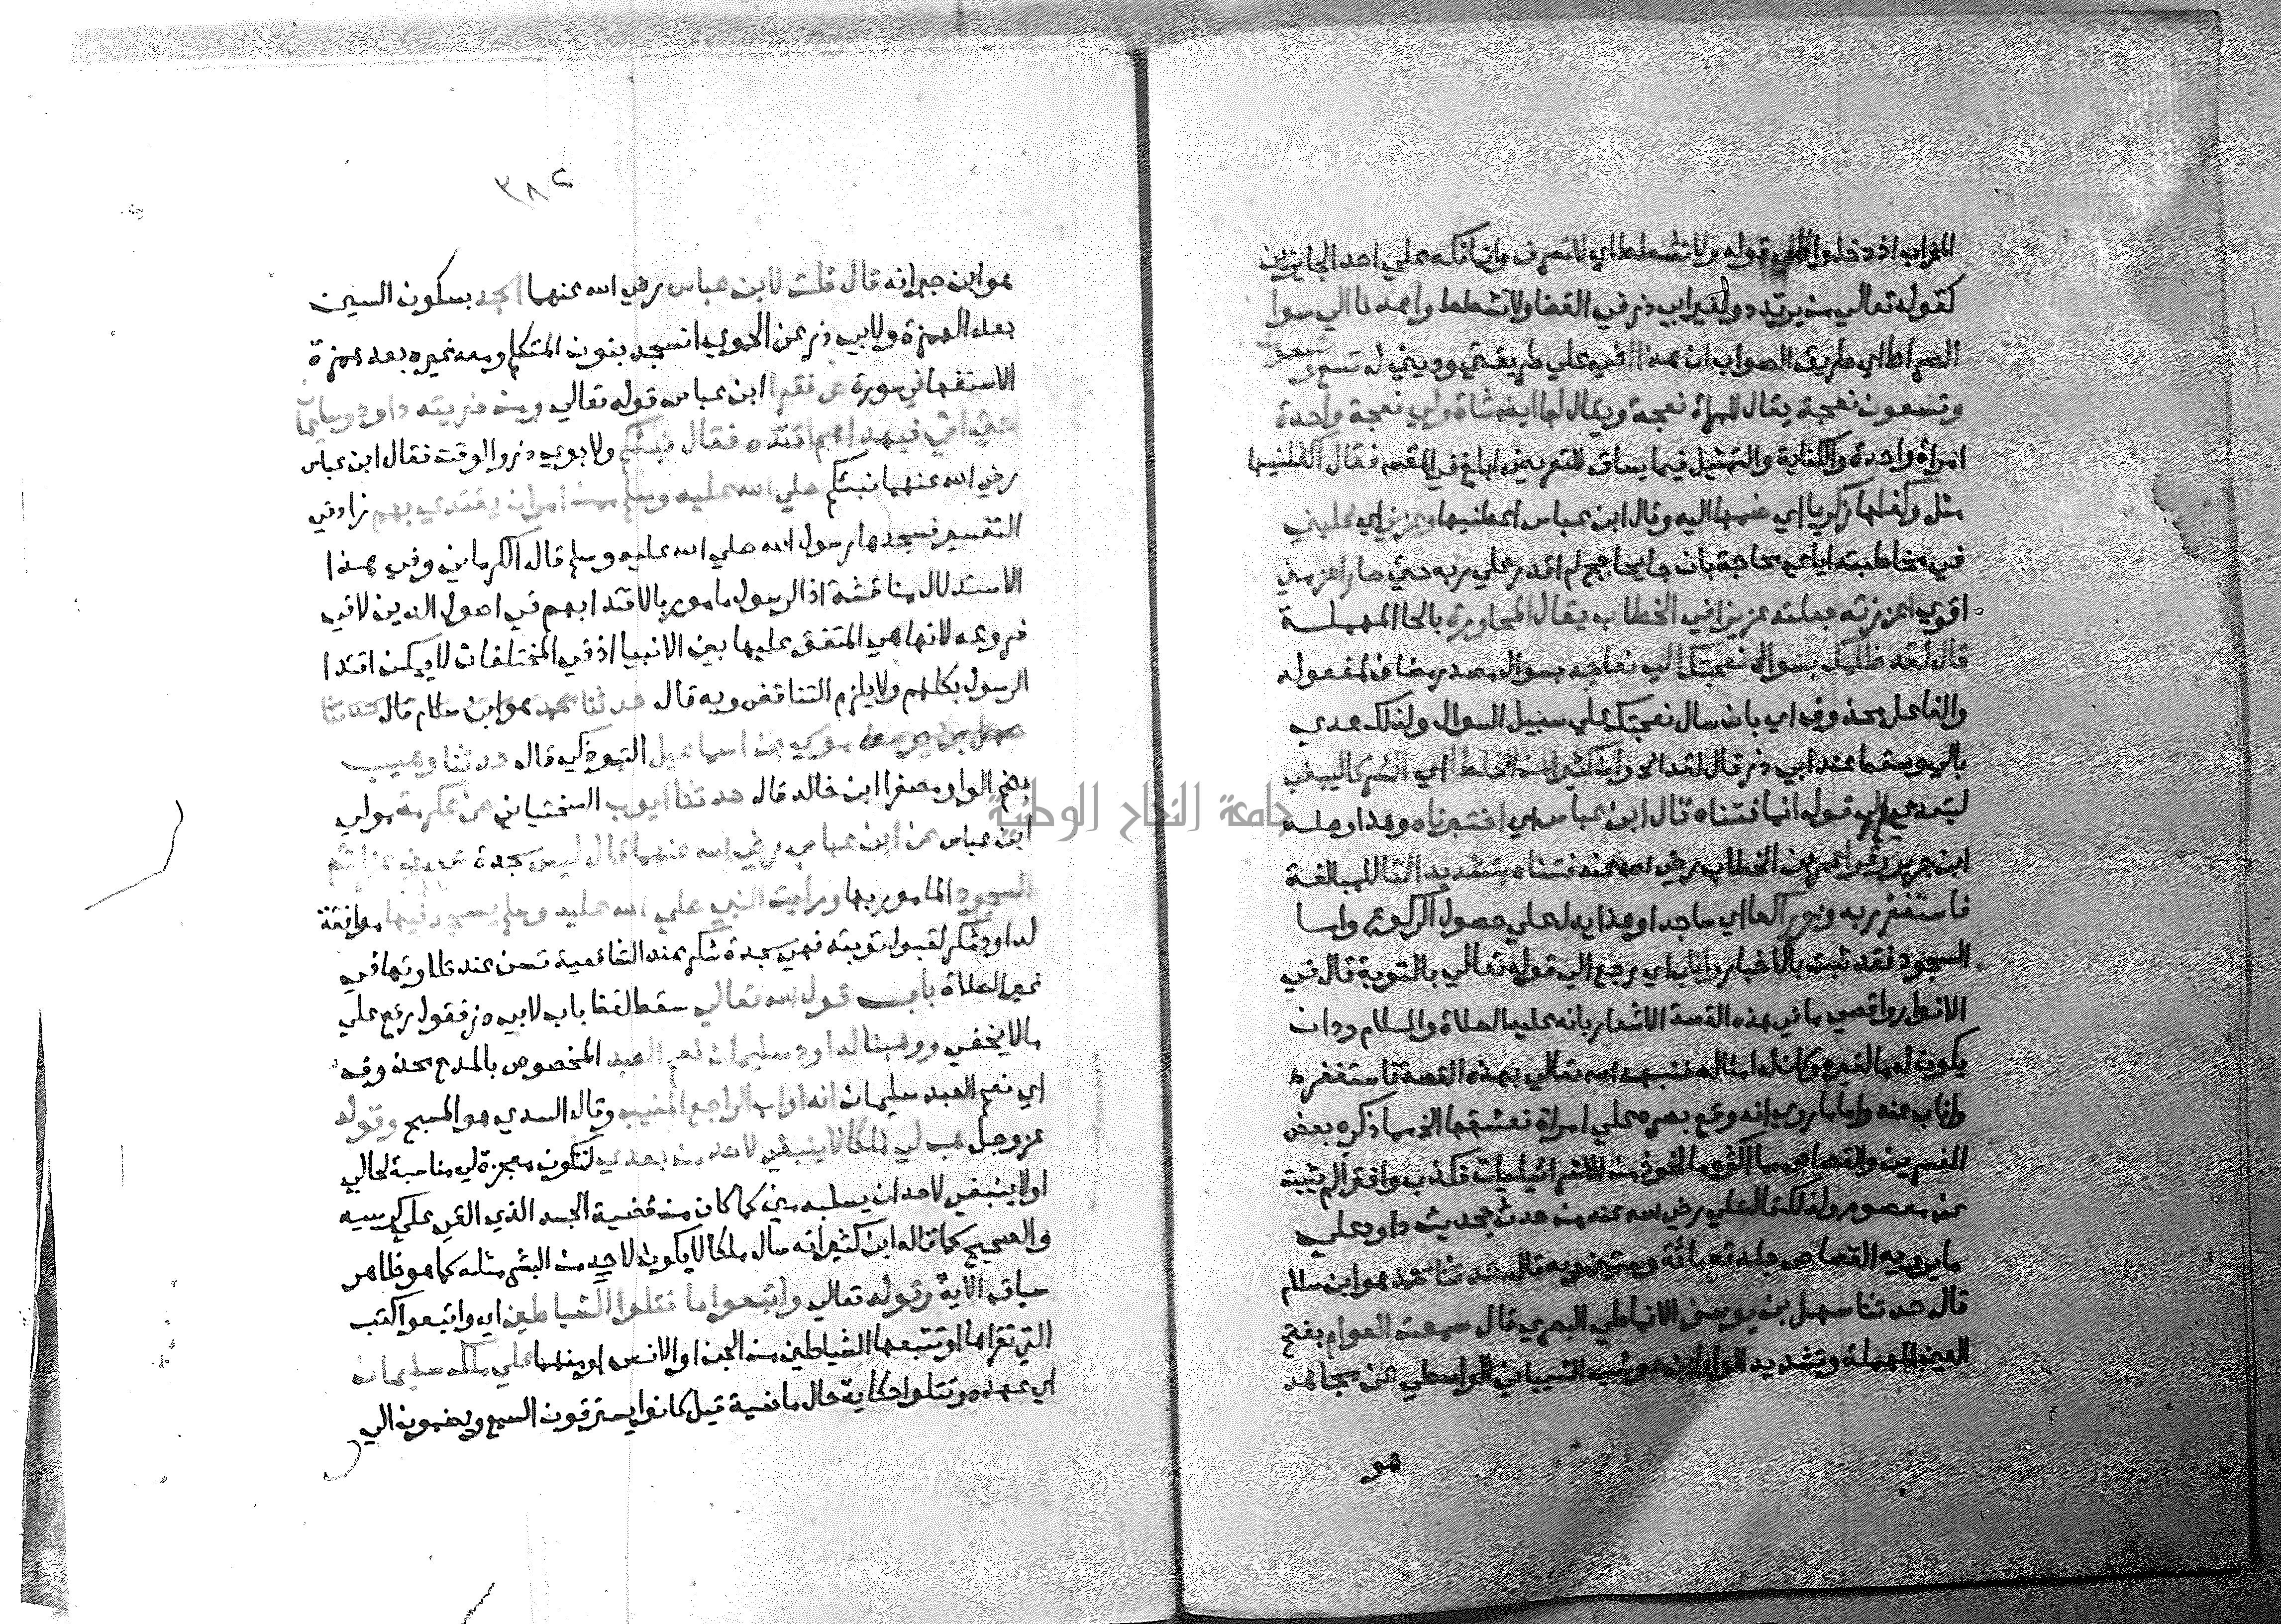 المحراب اذ دخلوا الي قوله ولا تشطط اي لا تسرف وانما نكه علي احد الجايزين
كقوله تعالي من يرتدد ولغير ابي ذر في القضا ولا تشطط واهدنا الي سوا
الصراط اي طريق الصواب ان هذا اخي علي طريقتي وديني له تسع وتسعون
وتسعون نعجة يقال للمراة نعجة ويقال لها ايضا شاة ولي نعجة واحدة
امراة واحدة والكناية والتمثيل فيما يساق للتعريض ابلغ في المقصد فقال اكفلنيها
مثل وكفلها زكريا اي ضمها اليه وقال ابن عباس اعطنيها وعزني اي غلبني
في مخاطبته اياي محاجة بان جا بحجاج لم اقدر علي رده حتي صار اعز مني
اقوي اعززته جعلته عزيزا في الخطاب يقال المحاورة بالحا المهملة
قال لقد ظلمك بسوال نعجتك الي نعاجه بسوال مصدر مضاف لمفعوله
والفاعل محذوف اي بان سال نعجتك علي سبيل السوال ولذلك عدي
بالي وسقط عند ابي ذر قال لقد الخ وان كثيرا من الخلطا اي الشركا ليبغي
ليتعدي الي قوله انما فتناه قال ابن عباس اي اختبرناه وهذا وصله
ابن جرير وقرا عمر بن الخطاب رضي الله عنه فتناه بتشديد التا للمبالغة
فاستغفر ربه وخر راكعا اي ساجدا وهذا يدل علي حصول الركوع واما
السجود فقد ثبت بالاخبار واناب اي رجع الي قوله تعالي بالتوبة قال في
الانوار واقصي ما في هذه القصة الاشعار بانه عليه الصلاة والسلام ود ان
يكون له ما لغيره وكان له امثاله فنبهه الله تعالي بهذه القصة فاستغفره
واناب عنه واما ما روي انه وقع بصره علي امراة تعشقها الخ مما ذكره بعض
المفسرين والقصاص مما اكثره ماخوذ من الاسرائيليات فكذب وافترا لم يثبت
عن معصوم ولذلك قال علي رضي الله عنه من حدث بحديث داود علي
ما يرويه القصاص جلدته مائة وستين وبه قال حدثنا محمد هو ابن سلام
قال حدثنا سهل بن يوسف الانماطي البصري قال سمعت العوام بفتح
العين المهملة وتشديد الواو ابن حوشب الشيباني الواسطي عن مجاهد
هو
٣٨٢
هو ابن جبر انه قال قلت لابن عباس رضي الله عنهما اسجد بسكون السين
بعد الهمزة ولابي ذر عن الحموي انسجد بنون المتكلم ومعه غيره بعد همزة
الاستفهام في سورة ص فقرا ابن عباس قوله تعالي ومن ذريته داود وسليمان
حتي اتي فبهداهم اقتده فقال نبيكم ولابوي ذر والوقت فقال ابن عباس
رضي الله عنهما نبيكم صلي الله عليه وسلم ممن امر ان يقتدي بهم زاد في
التفسير فسجدها رسول الله صلي الله عليه وسلم قال الكرماني وفي هذا
الاستدلال مناقشة اذ الرسول مامور بالاقتدا بهم في اصول الدين لا في
فروعه لانها هي المتفق عليها بين الانبيا اذ في المختلفات لا يمكن اقتدا
الرسول بكلهم ولا يلزم التناقض وبه قال حدثنا محمد هو ابن سلام قال حدثنا
سهل بن يوسف موسي بن اسماعيل التبوذكي قال حدثنا وهيب
بضم الواو مصغرا ابن خالد قال حدثنا ايوب السختياني عن عكرمة مولي
ابن عباس عن ابن عباس رضي الله عنهما قال ليس سجدة ص من عزائم
السجود المامور بها ورايت النبي صلي الله عليه وسلم يسجد فيها موافقة
لداود شكر لقبول توبته فهي سجدة شكر عند الشافعية تسن عند تلاوتها في
غير الصلاة باب قول الله تعالي سقط لفظ باب لابي ذر فقول رفع علي
ما لا يخفي ووهبنا لداود سليمان نعم العبد المخصوص بالمدح محذوف
اي نعم العبد سليمان انه اواب الراجع المنيب وقال السدي هو المسبح وقوله
عز وجل هب لي ملكا لا ينبغي لاحد من بعدي لتكون معجزة لي مناسبة لحالي
او لا ينبغي لاحد ان يسلبه مني كما كان من قضية الجسد الذي القي علي كرسيه
والصحيح كما قاله ابن كثير انه سال ملكا لا يكون لاحد من البشر مثله كما هو ظاهر
سياق الاية وقوله تعالي واتبعوا ما تتلوا الشياطين اي واتبعوا كتب
التي تقراها او تتبعها الشياطين من الجن او الانس او منهما علي ملك سليمان
اي عهده وتتلوا حكاية حال ماضية قيل كانوا يسترقون السمع ويضمون الي
جامعة النجاح الوطنية